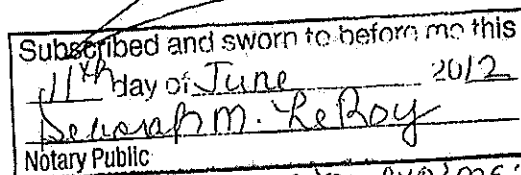 Subscribed and sworn to before me this
11th day of June 2012
Deborah M. LeRoy
Notary Public